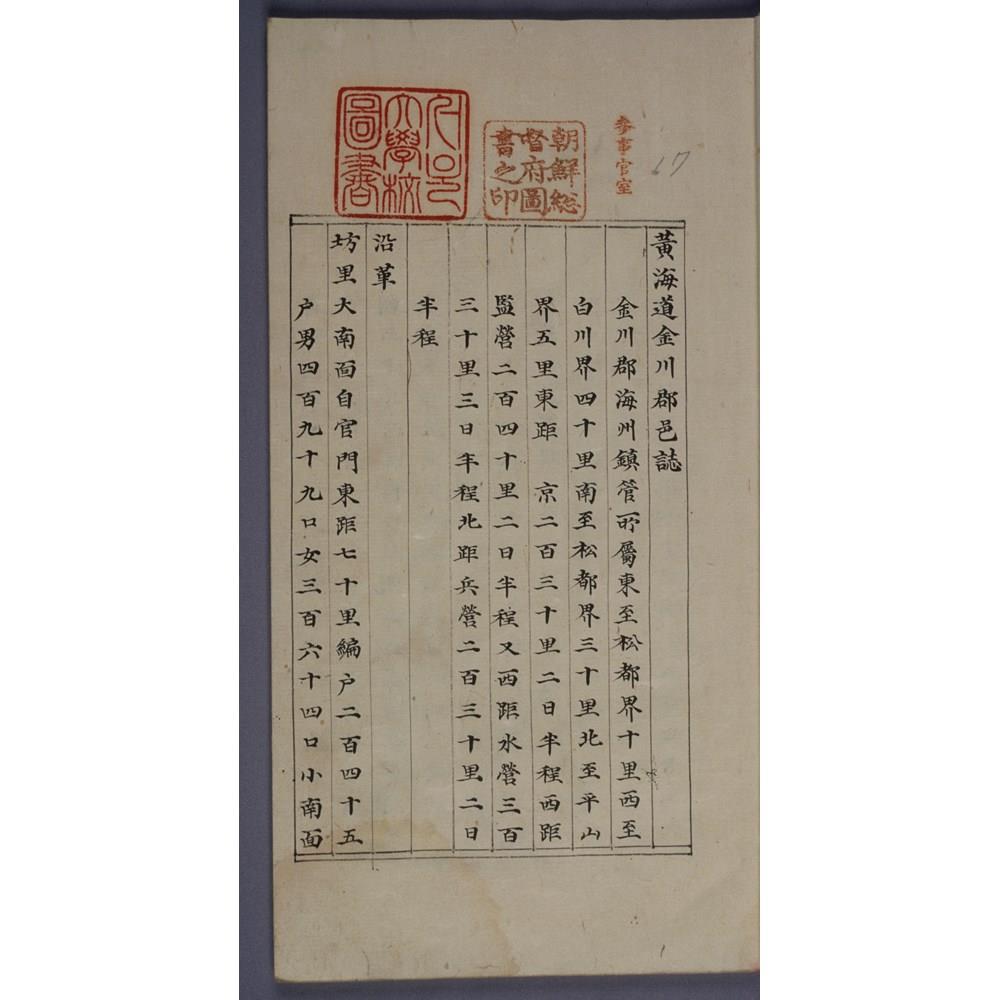 黃海道金川郡邑誌
金川郡海州鎭管所屬東至松都界十里西至
白川界四十里南至松都界三十里北至平山
界五里東距 京二百三十里二日半程西距
監營二百四十里二日半程又西距水營三百
三十里三日半程北距兵營二百三十里二日
半程
沿革
坊里大南面自官門東距七十里編户二百四十五
户男四百九十九口女三百六十四口小南面
參事官室
17
朝鮮総
督府圖
書之印
서울
大學校
圖書